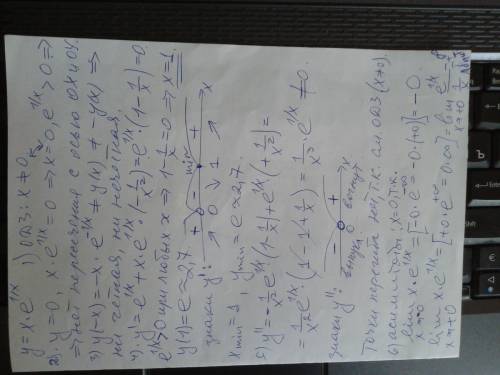 y = x·e^{1/x} 1) ОДЗ: x ≠ 0
2) y = 0, x e^{1/x} = 0 ⇒ x = 0, e^{1/x} > 0 ⇒
⇒ нет пересечения с осью OX и OY.
3) y(-x) = -x e^{-1/x} ≠ y(x) ≠ -y(x) ⇒
ни чётная, ни нечётная.
4) y' = e^{1/x} + x·e^{1/x}(-1/x²) = e^{1/x}·(1 - 1/x) = 0
e^{1/x} > 0 при любых x ⇒ 1 - 1/x = 0 ⇒ x = 1
y(1) = e ≈ 2,7
min
знаки y': + 0 - 1 + x
x min = 1, y min = e ≈ 2,7
5) y'' = -1/x² e^{1/x}(1 - 1/x) + e^{1/x}(+1/x²) =
= 1/x² e^{1/x}(1 - 1 + 1/x) = 1/x³·e^{1/x} ≠ 0.
знаки y'': - 0 + x
выпукла вогнута
Точки перегиба нет, т.к. см ОДЗ (x ≠ 0).
6) асимптоты: x = 0, т.к.
lim x→-0 x·e^{1/x} = [-0·e^{-∞} = -0·(+0)] = -0
lim x→+0 x·e^{1/x} = [+0·e^{+∞} = 0·∞] = lim x→+0 e^{1/x} / 1/x